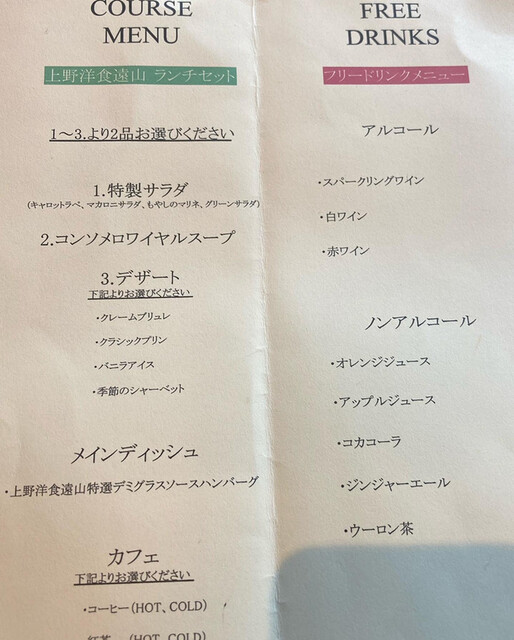 COURSE
MENU
上野洋食遠山 ランチセット
1〜3.より2品お選びください
1.特製サラダ
(キャロットラペ、マカロニサラダ、もやしのマリネ、グリーンサラダ)
2.コンソメロワイヤルスープ
3.デザート
下記よりお選びください
・クレームブリュレ
・クラシックプリン
・バニラアイス
・季節のシャーベット
メインディッシュ
・上野洋食遠山特選デミグラスソースハンバーグ
カフェ
下記よりお選びください
・コーヒー(HOT、COLD)
・紅茶 (HOT、COLD)
FREE
DRINKS
フリードリンクメニュー
アルコール
・スパークリングワイン
・白ワイン
・赤ワイン
ノンアルコール
・オレンジジュース
・アップルジュース
・コカコーラ
・ジンジャーエール
・ウーロン茶